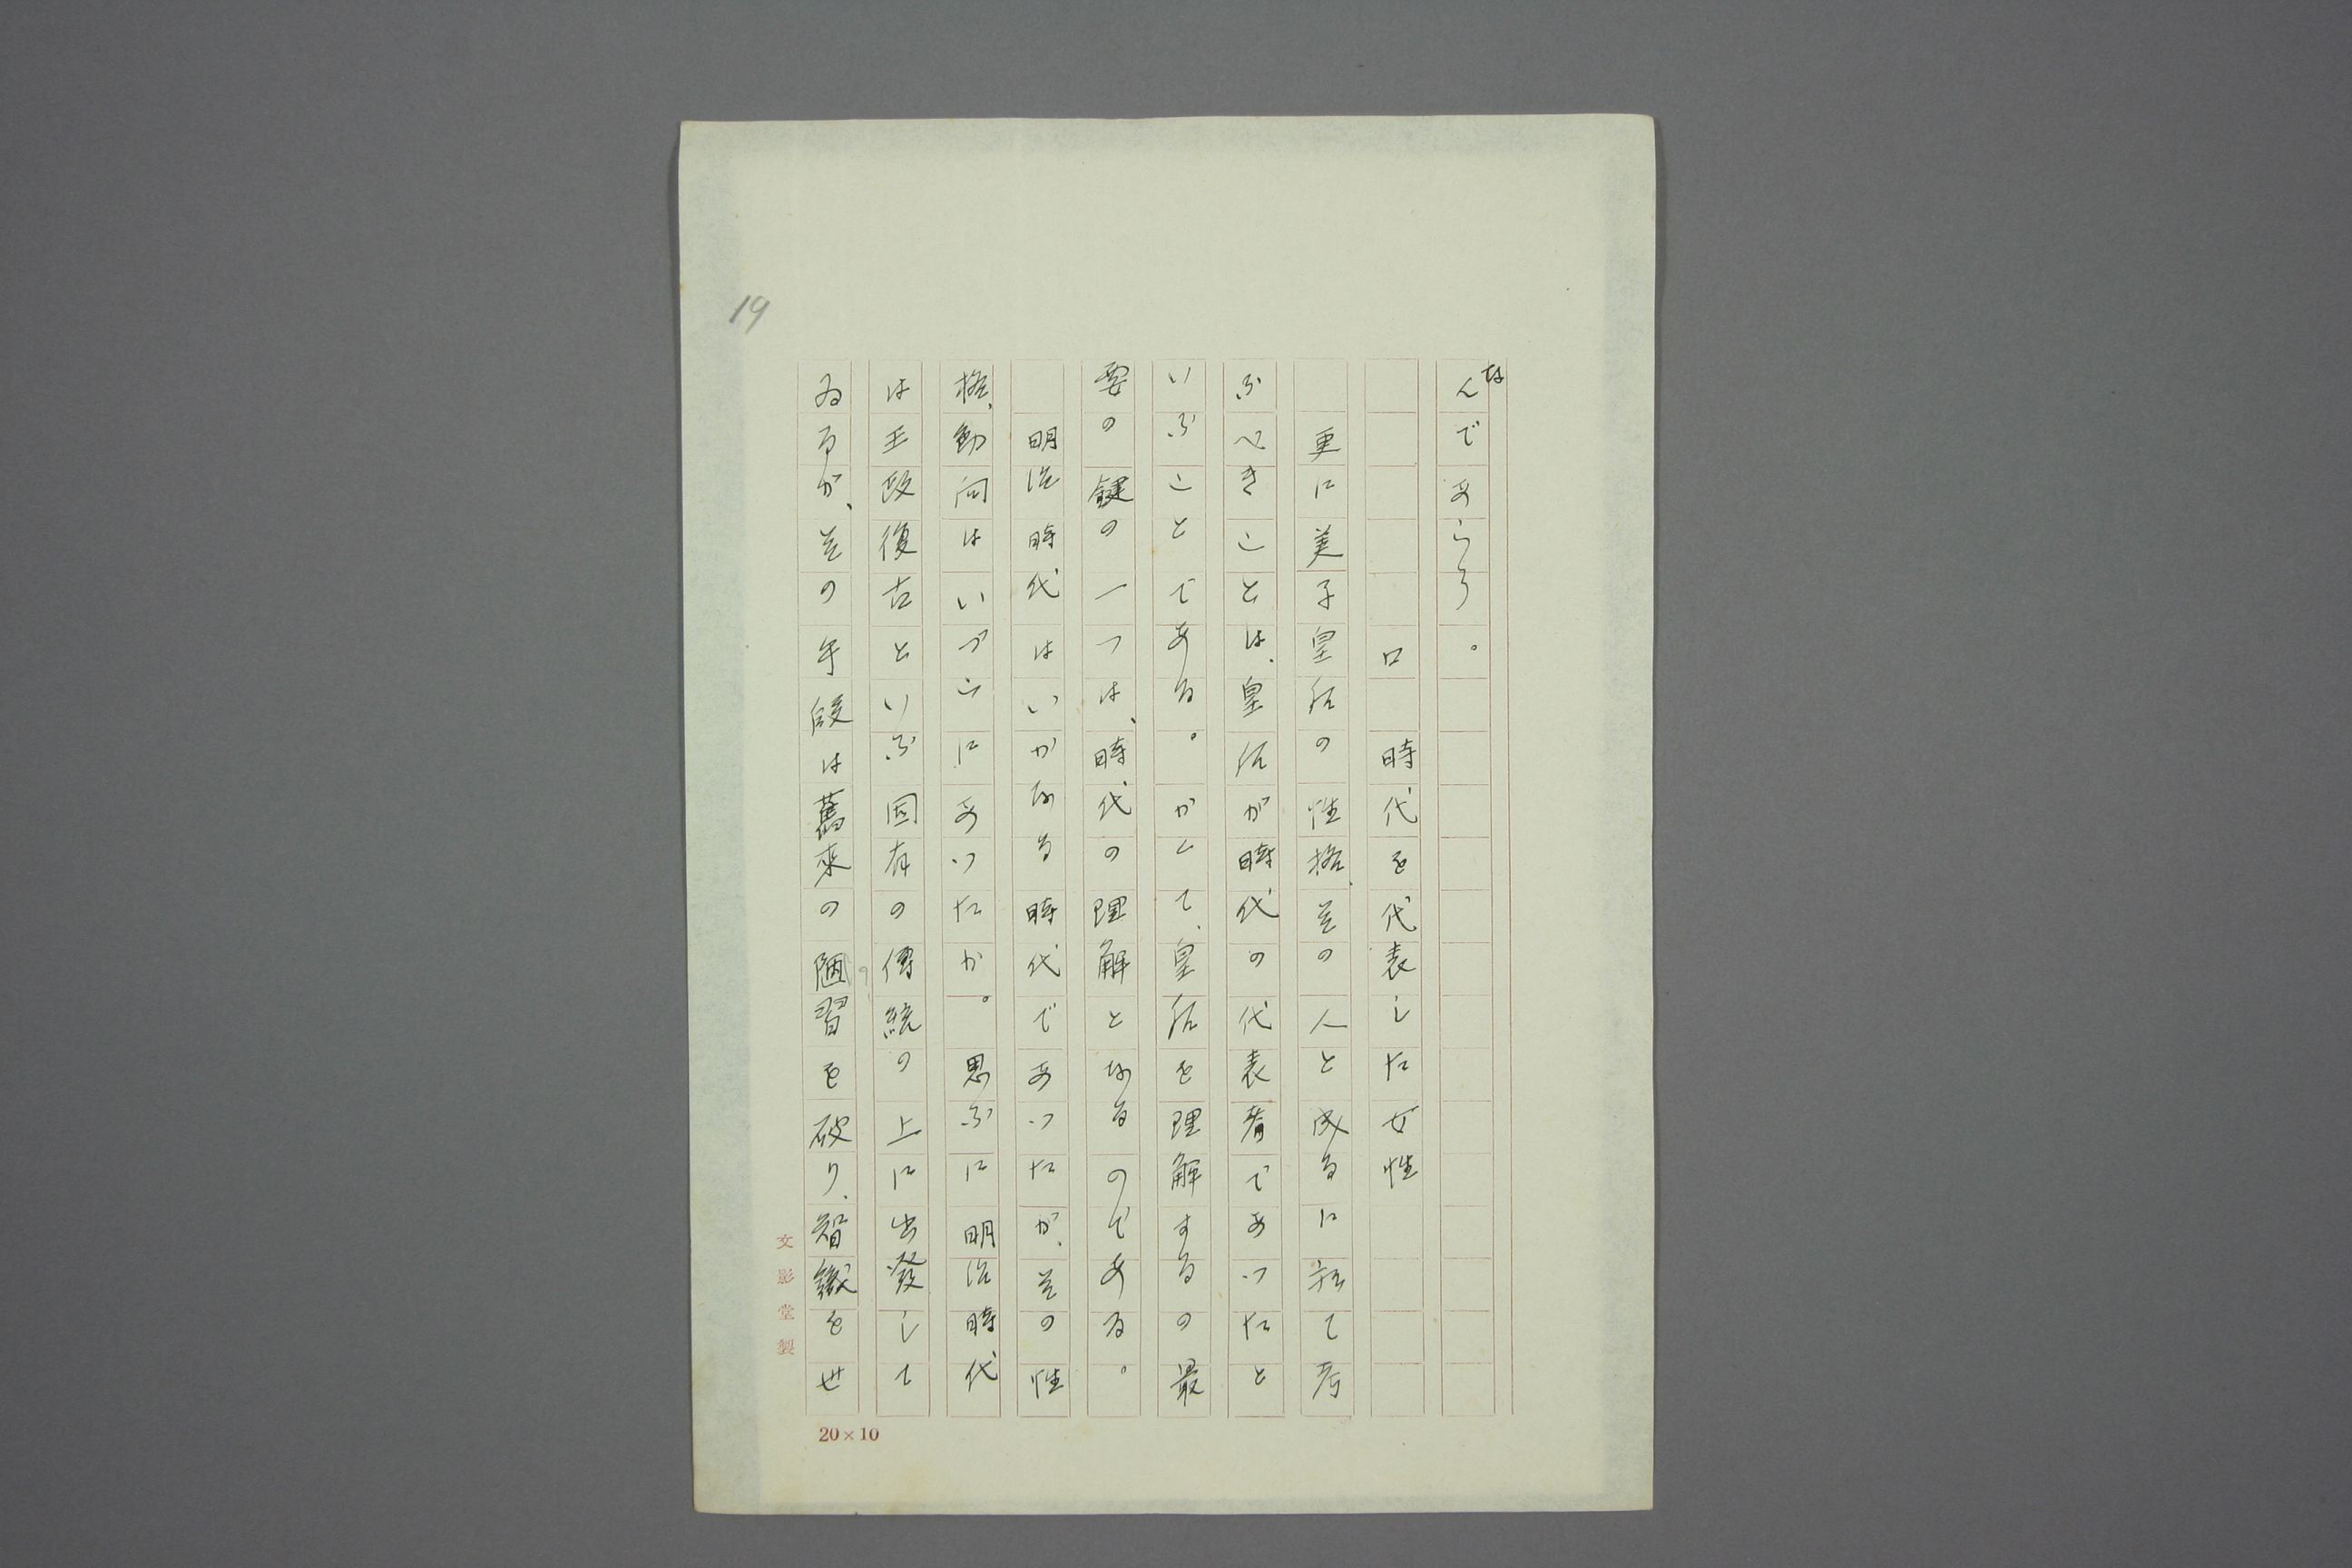 なんであらう。
ロ 時代を代表した女性
更に美子皇后の性格、其の人と成るに就て考
ふべきことは、皇后が時代の代表者であつたと
いふことである。かくて、皇后を理解するの最
要の鍵の一つは、時代の理解となるのである。
明治時代はいかなる時代であつたが、其の性
格、動向はいづこにあつたか。思ふに明治時代
は王政復古といふ固有の傳統の上に出發して
ゐるが、其の手段は舊來の陋習を破り、智識を世
19
文影堂製
20×10